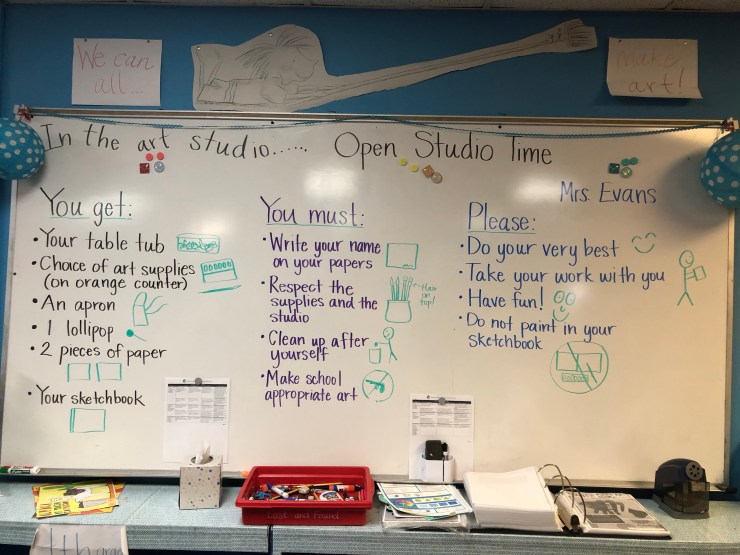 We can
all...
Make
art!
In the art studio...... Open Studio Time
Mrs. Evans
You get:
• Your table tub
• Choice of art supplies
(on orange counter)
• An apron
• 1 lollipop
• 2 pieces of paper
• Your sketchbook
You must:
• Write your name
on your papers
• Respect the
supplies and the
studio
• Clean up after
yourself
• Make school
appropriate art
Please:
• Do your very best
• Take your work with you
• Have fun!
• Do not paint in your
sketchbook
Lost and Found